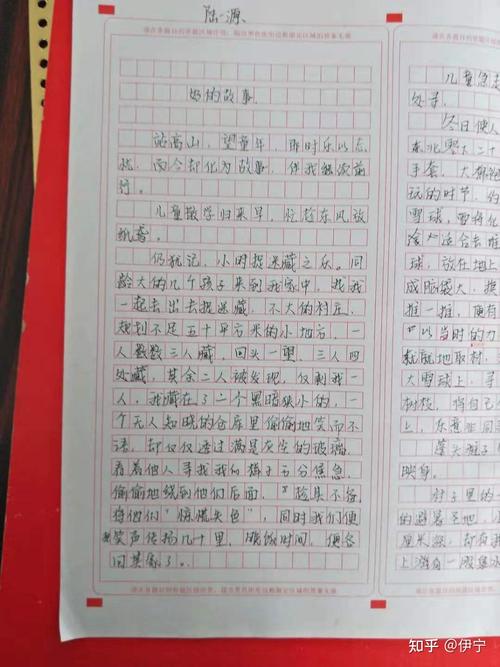 陆一源
请在各题目的答题区域内作答,超出黑色矩形边框限定区域的答案无效
奶的故事
站高山,望童年,那时乐以忘
忧,而今却化为故事,伴我继续前
行。
儿童散学归来早,忙趁东风放
纸鸢。
仍犹记,小时捉迷藏之乐。同
龄大的几个孩子来到我家中,找我
一起去出去捉迷藏,不大的村庄,
规划不足五十平方米的小地方,一
人数数三人藏,回头一望,三人四
处藏,其余二人被发现,仅剩我一
人,我藏在了一个黑暗狭小的,一
个无人知晓的仓库里偷偷地笑而不
语,却仅仅透过满是灰尘的玻璃,
看着他人寻找我的样子十分焦急,
偷偷地绕到他们后面,"趁其不备
将他们"惊慌失色",同时我们便
笑声传扬几十里,晚饭时间,便各
回其家了。
请在各题目的答题区域内作答,超出黑色矩形边框限定区域的答案无效
儿童急走
处寻。
冬日使人
东北零下二十
手套,大都
玩的时节,
雪球,
冷"适合去堆
球,放在地上
成脑袋大,换
推一推,便有
"以当时的力
就就地取材,
大雪球上,寻
树枝,将自己
上,东
蓬头稚子
映身。
村子里的
的避暑圣地,小
厘米深,却有
上游有一
知乎 @伊宁